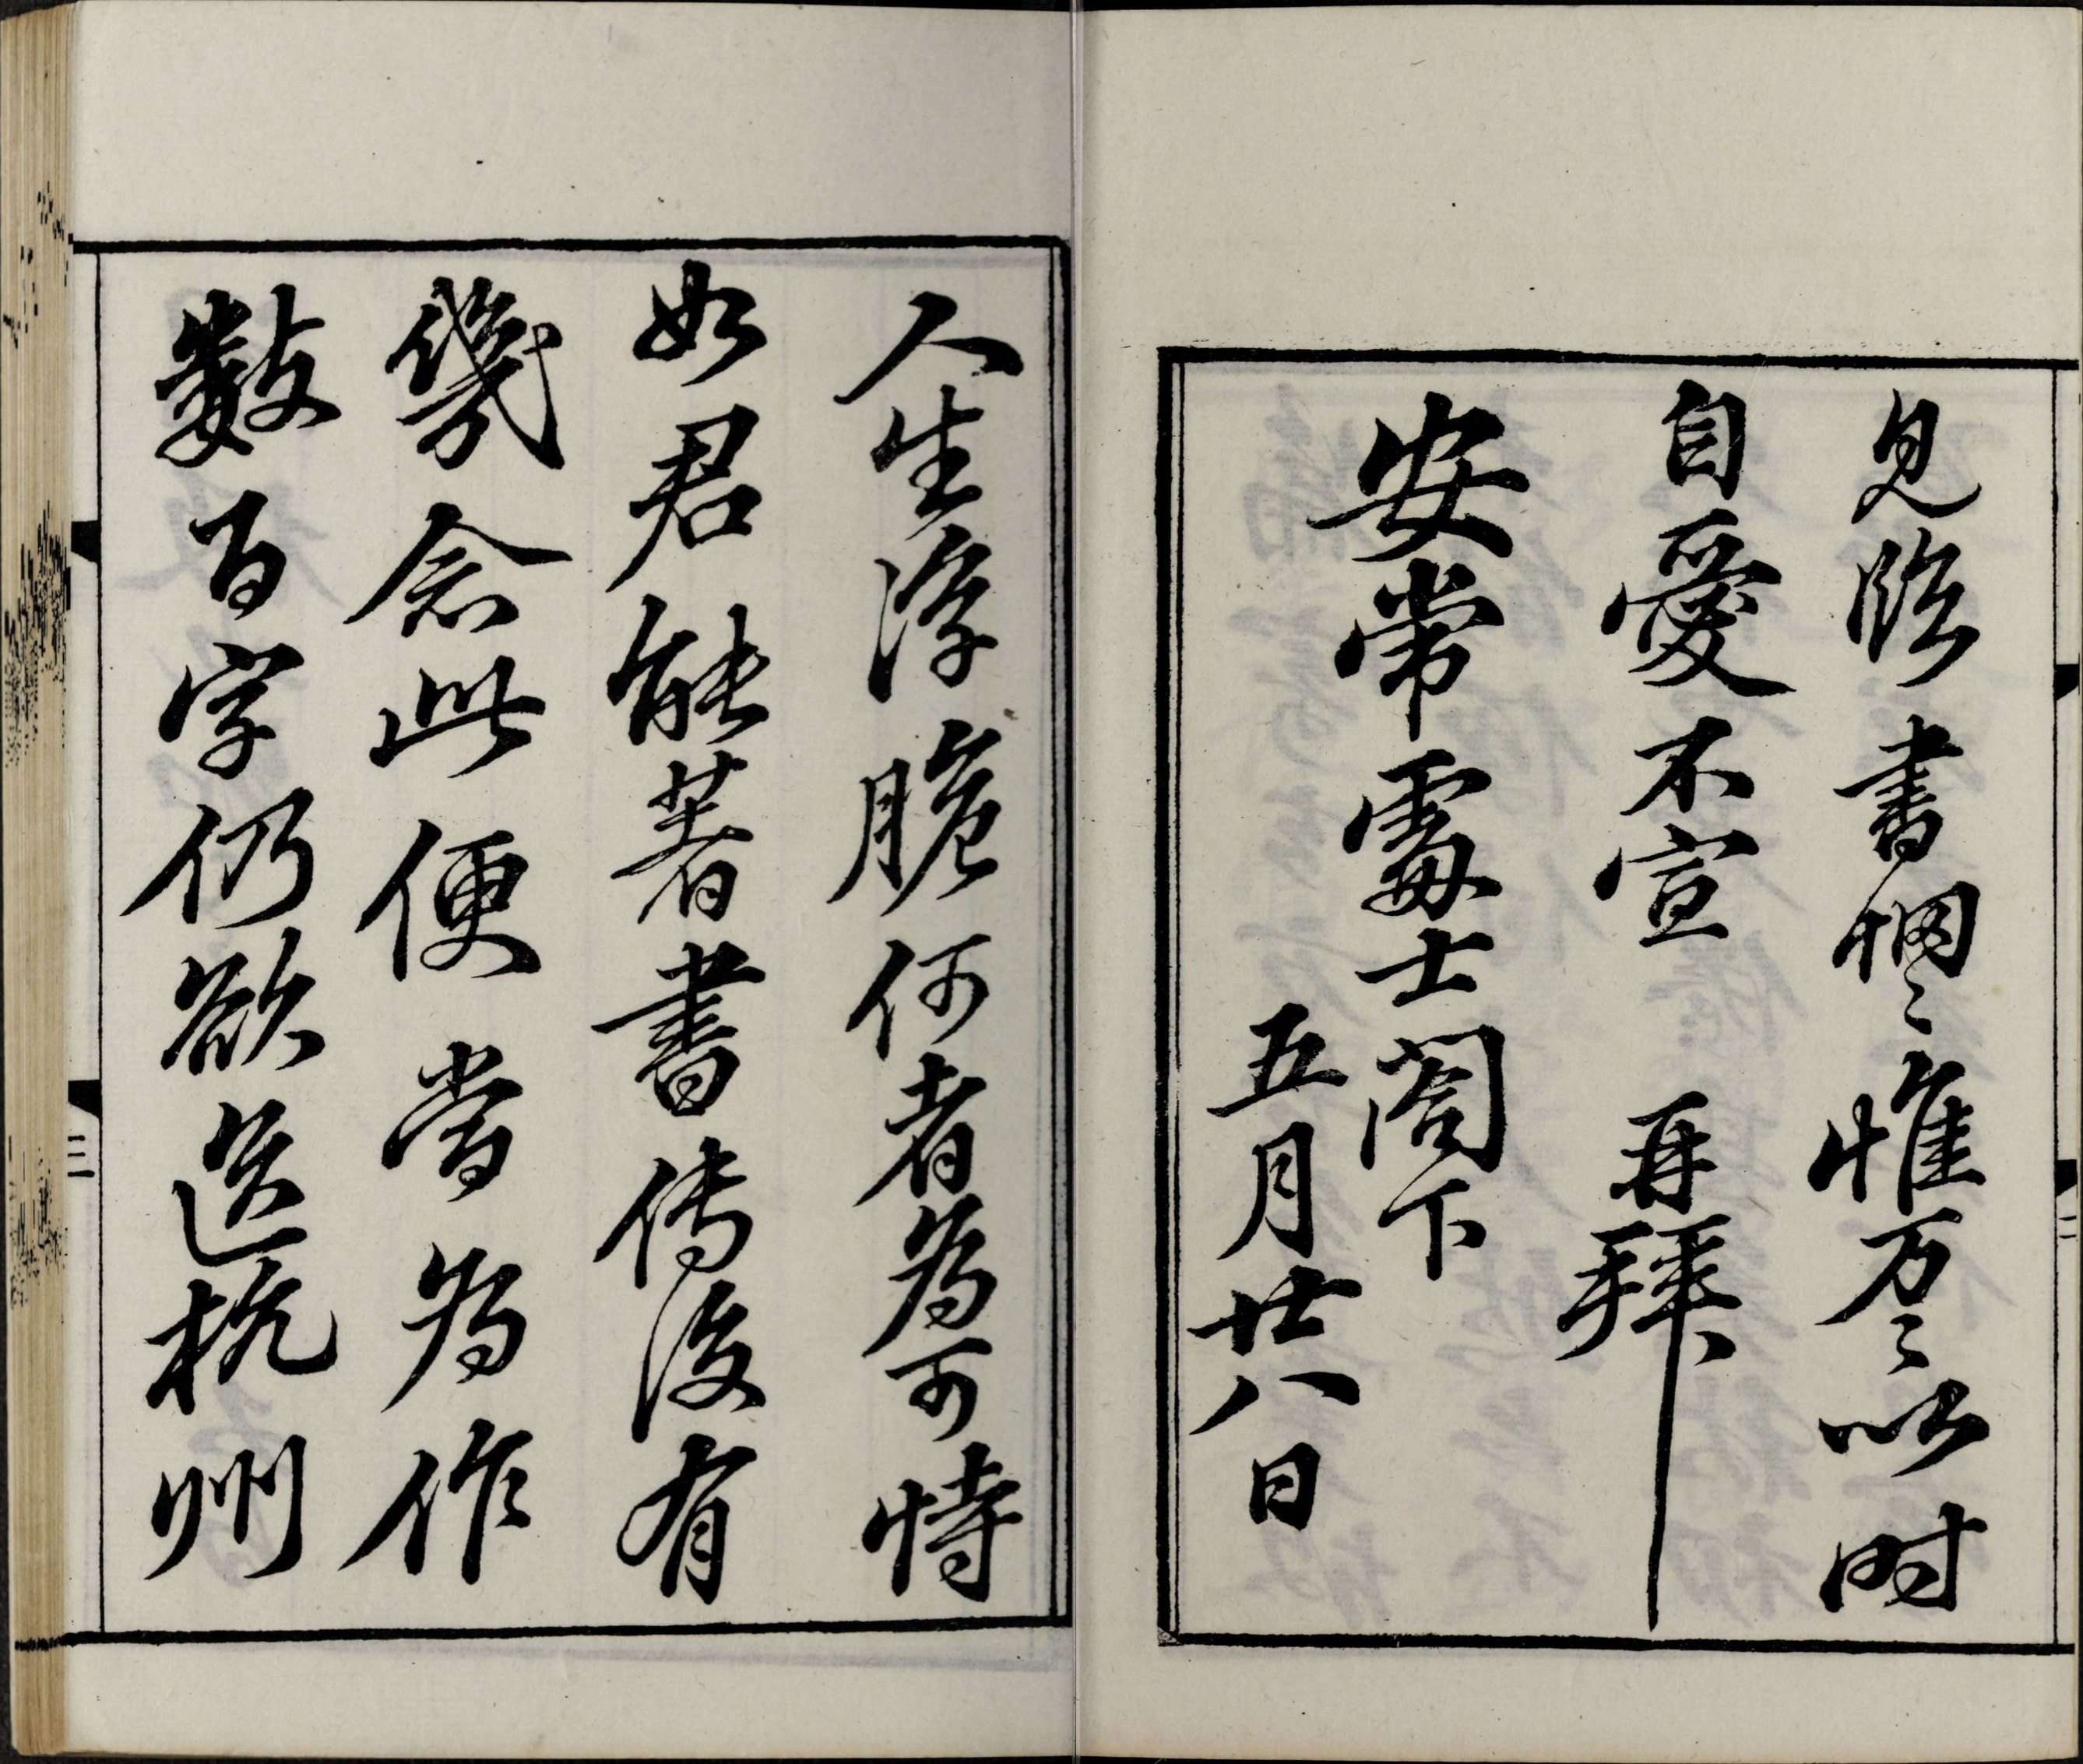 見臨書惘〻惟万〻以时
自愛不宣　再拜
安常處士閤下
五月廿八日
人生浮脆何者為可恃
如君能著書传後有
幾念此便當為作
數百字仍欲送杭州
三
二